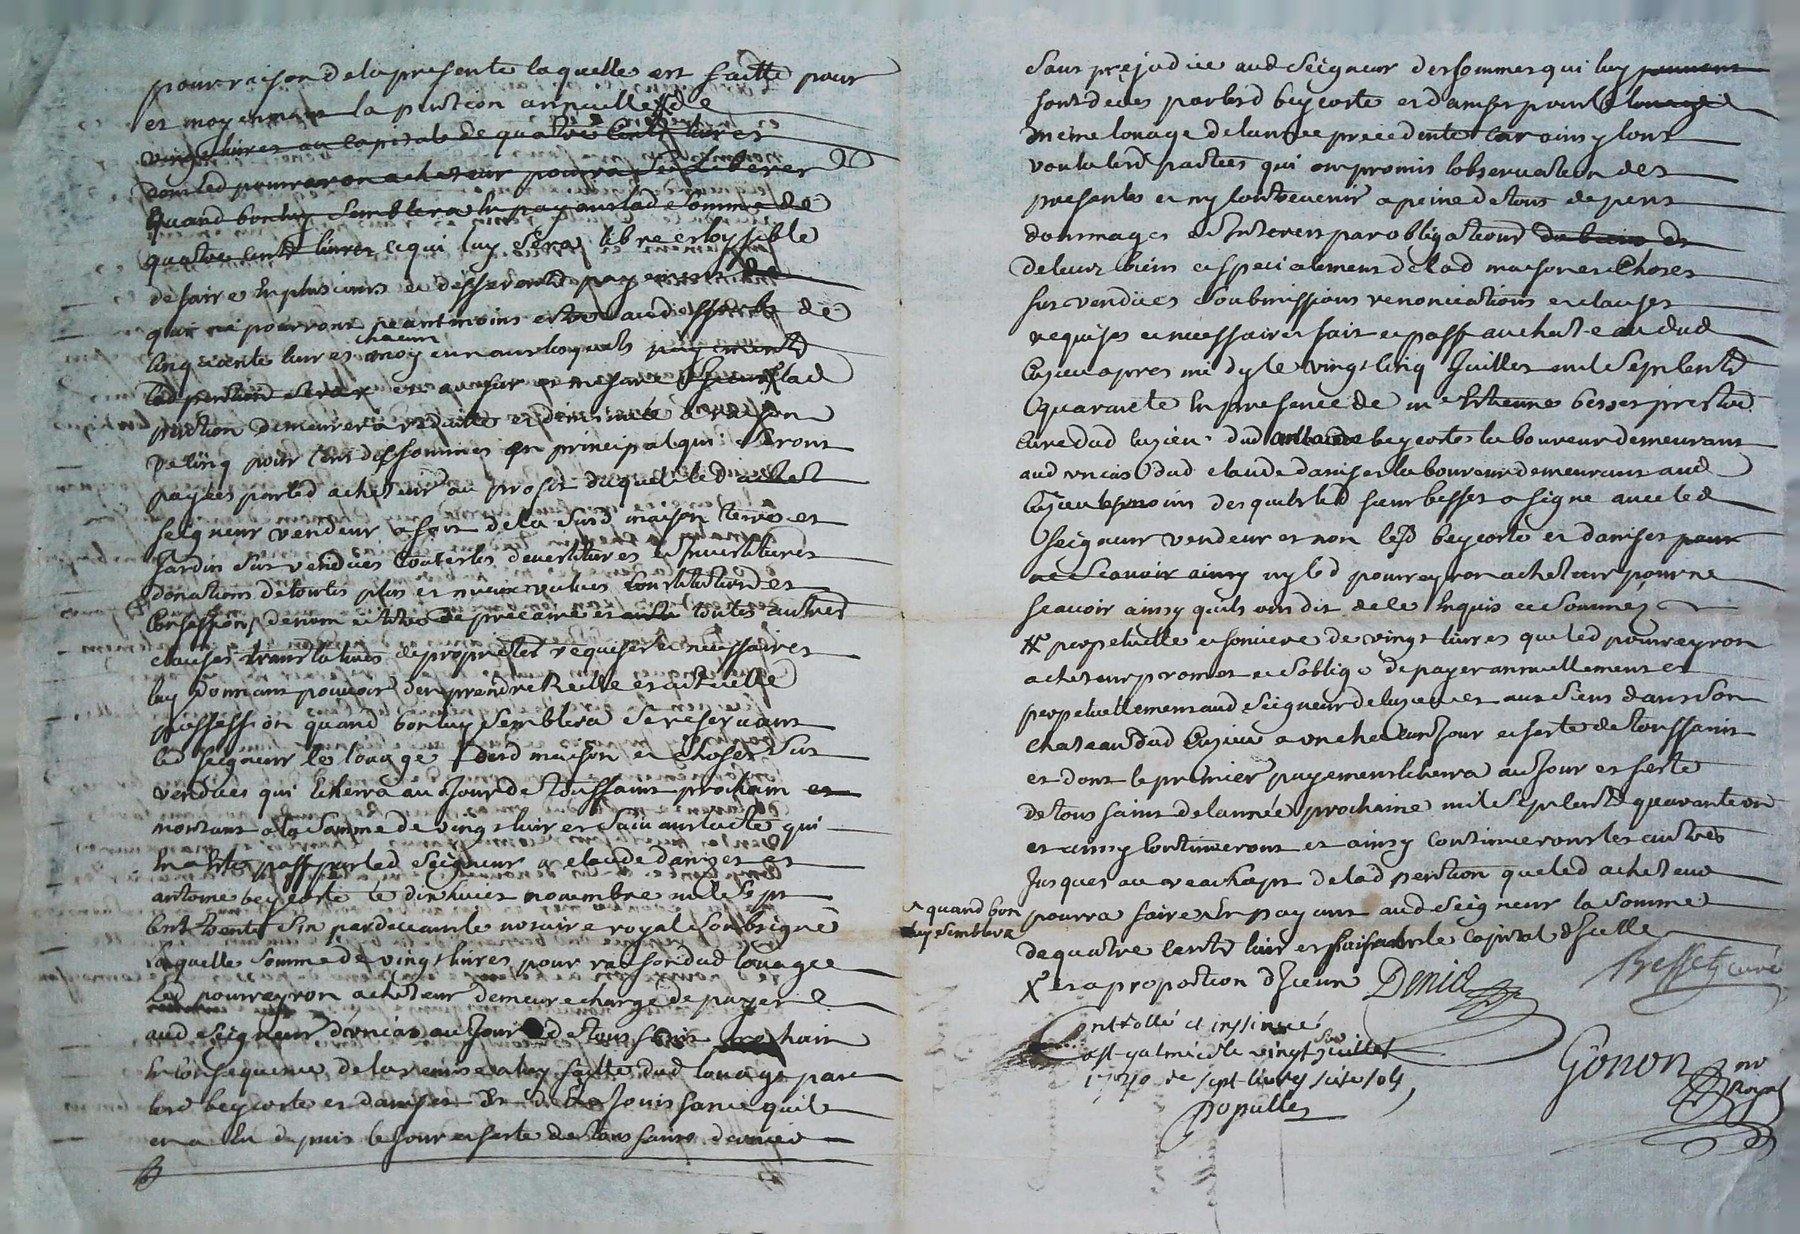 pour raison de la presente laquelle est faitte pour
et moyennant la pention annuelle de
vingt livres au capital de quatre cents livres
dont led pourreyron achepteur pourra se liberer
quand bon luy semblera en payant lad somme de
quatre cents livres ce qui luy sera libre et loysible
de faire en plusieurs et differents payements
qui ne pourront neantmoins estre au dessoubs de
cinquante livres chacun moyennant lesquels payements
lad pention sera et au fur et mesure lad
pention demeurera reduitte et diminuée a raison
de cinq pour cent des sommes en principal qui seront
payées par led achepteur au profit duquel led
seigneur vendeur a fait de la susd maison terres et
jardin sus vendues toutes les devestitures et investitures
donations de toutes plus et mieux values constitutions et
confessions de nom et titre de precaire et toutes autres
clauses translatives de proprieté requises et necessaires
luy donnant pouvoir d'en prendre reelle et actuelle
possession quand bon luy semblera se reservant
led seigneur le louage desd maison et choses sus
vendues qui echerra au jour de Toussaint prochain et
montant a la somme de vingt livres suivant l'acte qui
en a été passé par led seigneur a claude daniser et
antoine beycoste le dix huit novembre mil sept
cent trente six pardevant le notaire royal soubsigné
laquelle somme de vingt livres pour raison dud louage
led pourreyron achepteur demeure chargé de payer
aud seigneur d'uncias au jour de tous saints prochain
en consequence de la remise a luy faitte dud louage par
lesd beycoste et daniser de jouissance quil
en a eu depuis le jour et feste de tous saints dernier
sans prejudice aud seigneur des sommes qui luy peuvent
sont deues par lesd beycoste et daniser pour le louage
meme louage de l'année precedente car ainsy l'ont
voulu lesd parties qui ont promis l'observation des
presentes et n'y contrevenir a peine de tous depens
dommages et interets par obligations de biens de
de leurs biens et specialement de lad maison et choses
sus vendues soubmissions renonciations et clauses
requises et necessaires fait et passé au chateau dud
Luzieu apres midy le vingt cinq Juillet mil sept cents
quarante en presence de mre Estienne besset prestre
curé dud luzieu dud antoine beycoste laboureur demeurant
aud uncias dud claude daniser laboureur demeurant aud
Luzieu temoins desquels led sieur besset a signé avec led
seigneur vendeur et non lesd beycoste et daniser pour
ne scavoir ainsy ny led pourreyron achepteur pour ne
scavoir ainsy quils ont dit de ce enquis et sommés
# perpetuelle et fonciere de vingt livres que led pourreyron
achepteur promet et s'oblige de payer annuellement et
perpetuellement aud seigneur de luzieu et aux siens dans son
chateau dud Luzieu a un chacun jour et feste de toussaint
et dont le premier payement echerra au jour et feste
de tous saints de l'année prochaine mil sept cents quarante un
et ainsy continueront et ainsy continueront les autres
Jusques au reachapt de lad pention que led achepteur
^ quand bon luy semblera
pourra faire en payant aud seigneur la somme
de quatre cents livres faisant le capital d'icelle
X et a proportion d'iceux Denid
Besset curé
Controllé et insinué
a st galmier le vingt six juillet
1740 Re sept livres seize sols
Populle
Gonon nre
Royal